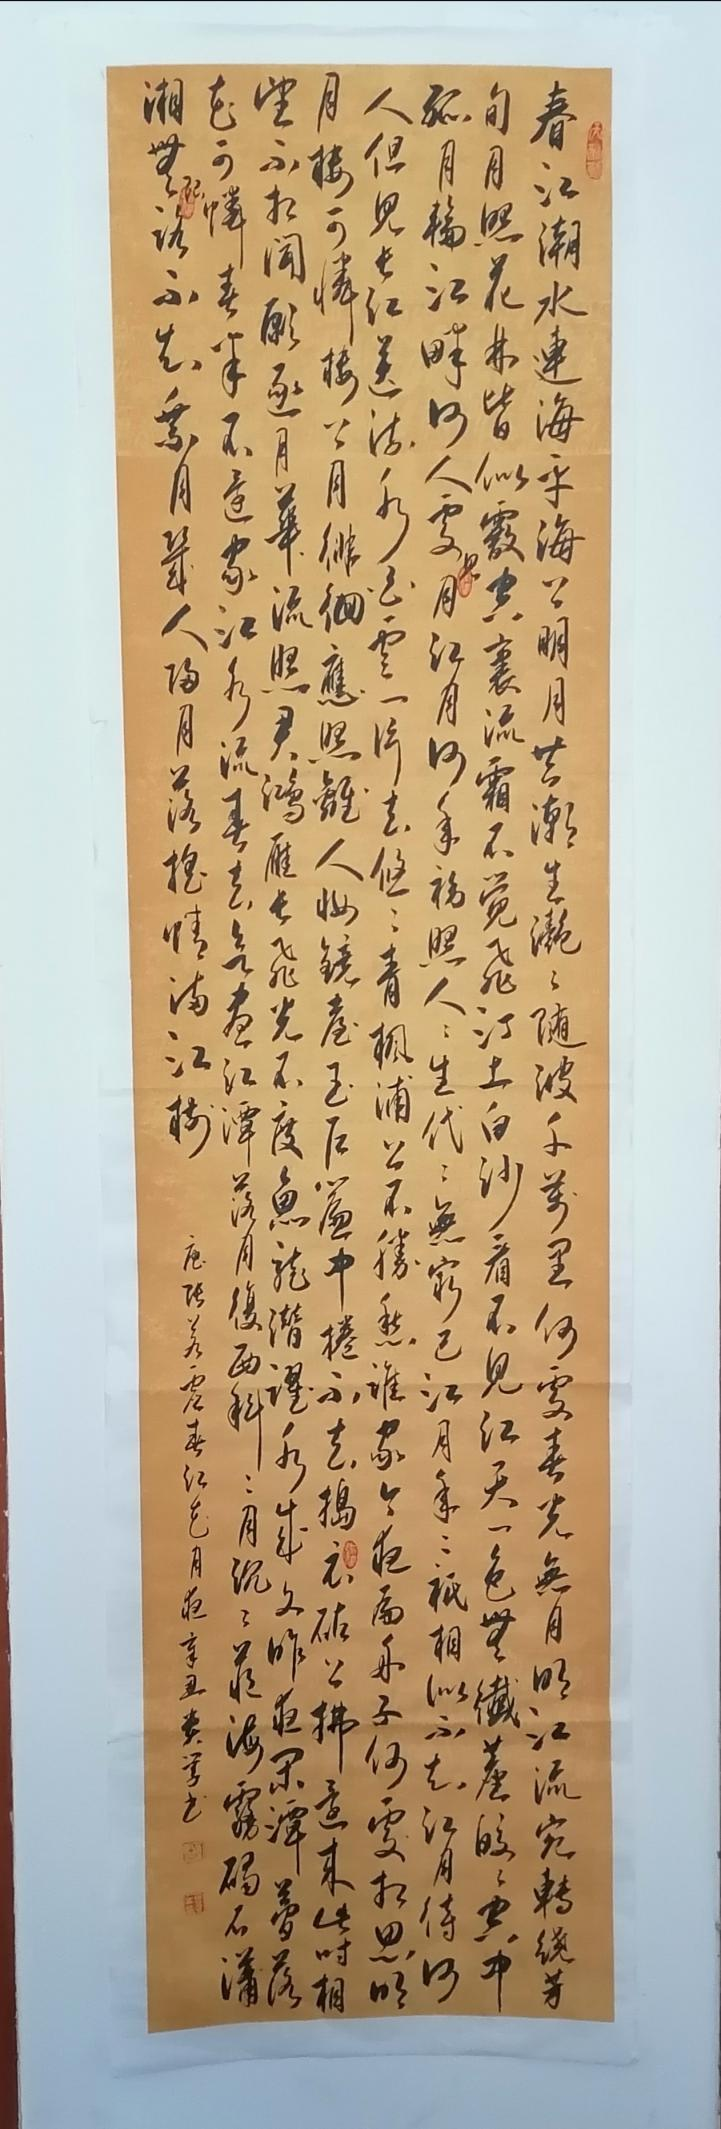 春江潮水連海平海上明月共潮生灩〻随波千萬里何處春光無月明江流宛轉繞芳
甸月照花林皆似霰空裏流霜不覺飛汀上白沙看不見江天一色無纖塵皎〻空中
孤月輪江畔何人見月江月何年初照人〻生代〻無窮已江月年〻祇相似不知江月待何
人但見長江送流水白雲一片去悠〻青楓浦上不勝愁誰家今夜扁舟子何處相思明
月樓可憐樓上月徘徊應照離人妝鏡臺玉户簾中捲不去搗衣砧上拂還來此時相
望不相聞願逐月華流照君鴻雁長飛光不度魚龍潛躍水成文昨夜閑潭夢落
花可憐春半不還家江水流春去欲盡江潭落月復西斜〻月沉〻藏海霧碣石瀟
湘無限路不知乘月幾人歸月落摇情滿江樹
唐張若虛春江花月夜辛丑學書